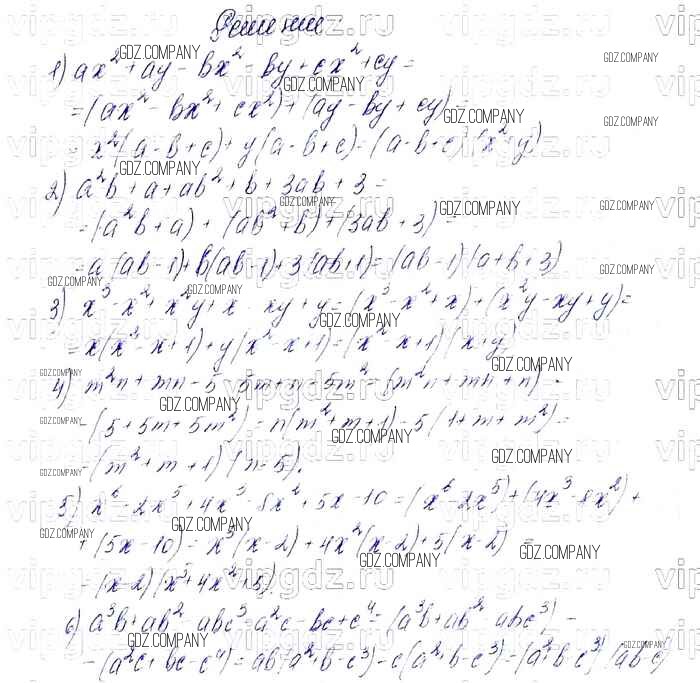 Решение:
1) ax² + ay - bx² - by + cx² + cy =
= (ax² - bx² + cx²) + (ay - by + cy) =
= x²(a - b + c) + y(a - b + c) = (a - b + c)(x² + y)
2) a²b + a + ab² + b + 3ab + 3 =
= (a²b + a) + (ab² + b) + (3ab + 3) =
= a(ab - 1) + b(ab - 1) + 3(ab + 1) = (ab - 1)(a + b + 3)
3) x³ - x² + x²y + x - xy + y = (x³ - x² + x) + (x²y - xy + y) =
= x(x² - x + 1) + y(x² - x + 1) = (x² - x + 1)(x + y)
4) m²n + mn - 5 - 5m + n - 5m² = (m²n + mn + n) -
- (5 + 5m + 5m²) = n(m² + m + 1) - 5(1 + m + m²) =
= (m² + m + 1)(n - 5).
5) x⁶ - 2x⁵ + 4x³ - 8x² + 5x - 10 = (x⁶ - 2x⁵) + (4x³ - 8x²) +
+ (5x - 10) = x⁵(x - 2) + 4x²(x - 2) + 5(x - 2) =
= (x - 2)(x⁵ + 4x² + 5).
6) a³b + ab² - abc³ - a²c - bc + c⁴ = (a³b + ab² - abc³) -
- (a²c + bc - c⁴) = ab(a² + b - c³) - c(a² + b - c³) = (a² + b - c³)(ab - c)